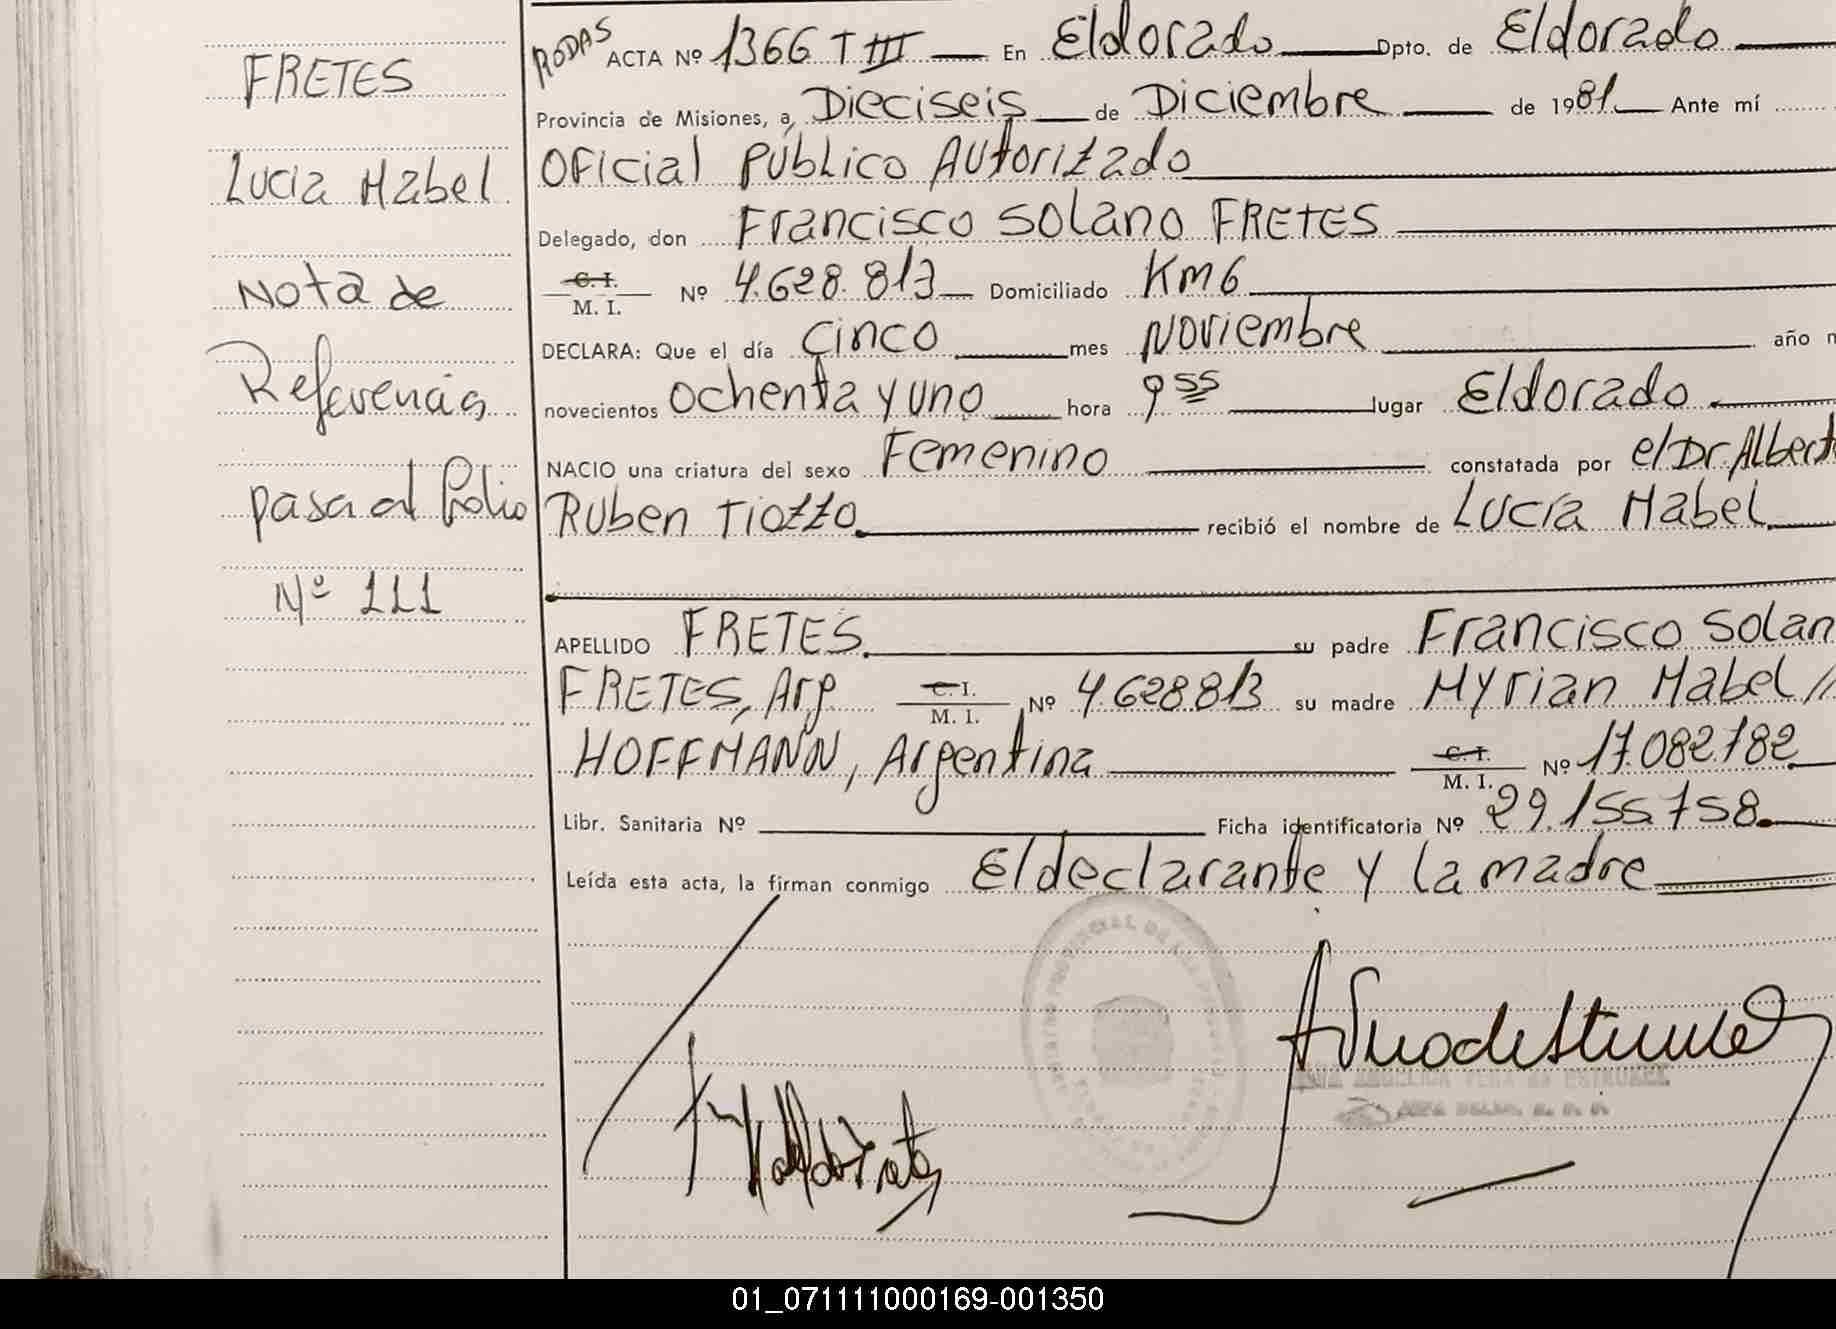 FRETES
Lucia Mabel
Nota de
Referencia
pasa al folio
Nº 111
RODAS ACTA Nº 1366 T III En Eldorado Dpto. de Eldorado
Provincia de Misiones, a, Dieciseis de Diciembre de 1981 Ante mí
Oficial Público Autorizado
Delegado, don Francisco Solano FRETES
C. I.
M. I. Nº 4.628.813 Domiciliado Km 6
DECLARA: Que el día Cinco mes Noviembre año
novecientos ochenta y uno hora 9 55 lugar Eldorado
NACIO una criatura del sexo Femenino constatada por el Dr. Albert
Ruben Tiozzo recibió el nombre de Lucía Mabel
APELLIDO FRETES su padre Francisco Solan
FRETES, Arg. C. I. M. I. Nº 4.628.813 su madre Myrian Mabel //
HOFFMANN, Argentina C. I. M. I. Nº 17.082.782
Libr. Sanitaria Nº Ficha identificatoria Nº 29.155.758
Leída esta acta, la firman conmigo El declarante y la madre
01_071111000169-001350